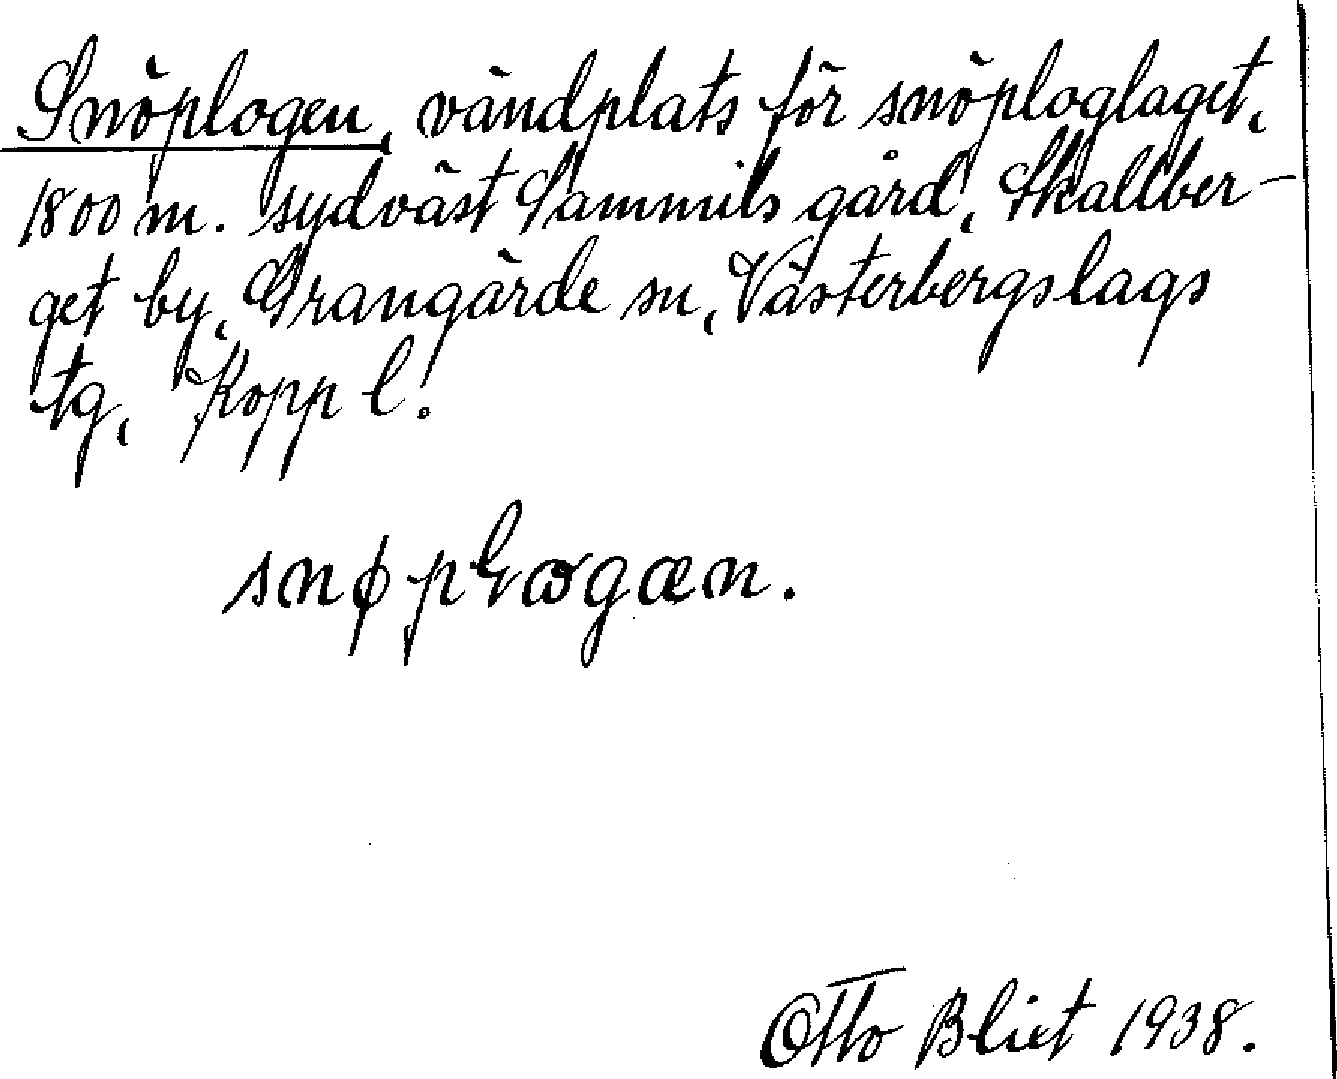 Snöplogen, vändplats för snöploglaget,
1800 m. sydväst Sammils gård, Skallber-
get by, Grangärde sn, Västerbergslags
tg, Kopp l.
snøpɽωgæn.
Otto Blixt 1938.